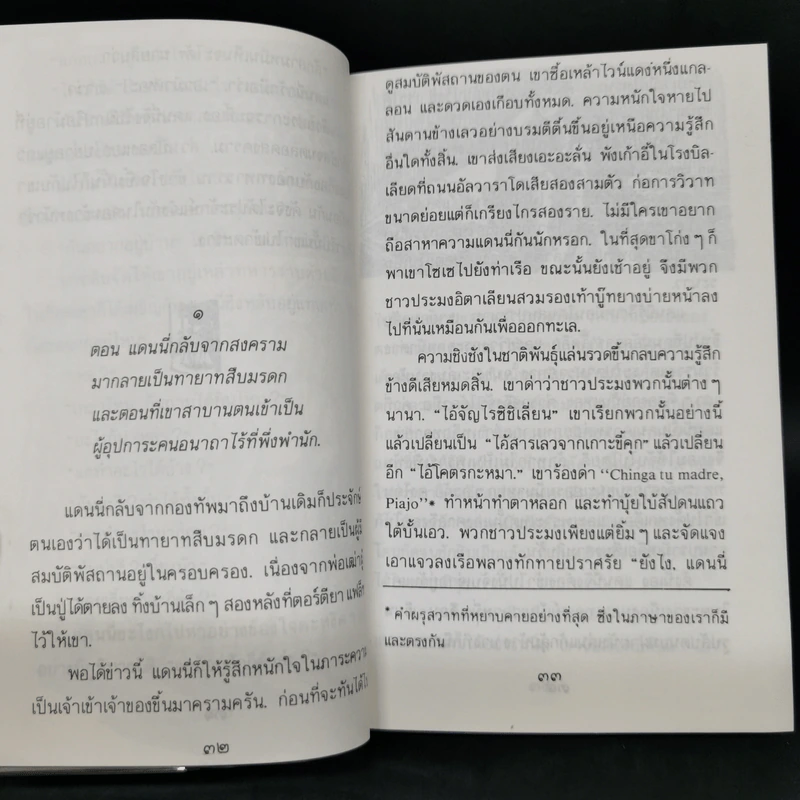 ๑
ตอน แดนนี่กลับจากสงคราม
มากลายเป็นทายาทสืบมรดก
และตอนที่เขาสาบานตนเข้าเป็น
ผู้อุปการะคนอนาถาไร้ที่พึ่งพำนัก.
แดนนี่กลับจากกองทัพมาถึงบ้านเดิมก็ประจักษ์
ตนเองว่าได้เป็นทายาทสืบมรดก และกลายเป็นผู้มี
สมบัติพัสถานอยู่ในครอบครอง. เนื่องจากพ่อเฒ่าผู้
เป็นปู่ได้ตายลง ทิ้งบ้านเล็กๆ สองหลังที่ตอร์ติยา แฟล็ต
ไว้ให้เขา.
พอได้ข่าวนี้ แดนนี่ก็ให้รู้สึกหนักใจในภาระความ
เป็นเจ้าเข้าเจ้าของขึ้นมาครามครัน. ก่อนที่จะทันได้ไป
๓๒
ดูสมบัติพัสถานของตน เขาซื้อเหล้าไวน์แดงหนึ่งแกล-
ลอน และดวดเองเกือบทั้งหมด. ความหนักใจหายไป
สันดานข้างเลวอย่างบรมดีดิ้นขึ้นอยู่เหนือความรู้สึก
อื่นใดทั้งสิ้น. เขาส่งเสียงเอะอะลั่น พังเก้าอี้ในโรงบิล-
เลียดที่ถนนอัลวาราโดเสียสองสามตัว ก่อการวิวาท
ขนาดย่อยแต่ก็เกรียงไกรสองราย. ไม่มีใครเขาอยาก
ถือสาหาความแดนนี่กันนักหรอก. ในที่สุดขาโก่งๆ ก็
พาเขาโซเซไปยังท่าเรือ ขณะนั้นยังเช้าอยู่ จึงมีพวก
ชาวประมงอิตาเลียนสวมรองเท้าบู๊ทยางบ่ายหน้าลง
ไปที่นั่นเหมือนกันเพื่อออกทะเล.
ความชิงชังในชาติพันธุ์แล่นรวดขึ้นกลบความรู้สึก
ข้างดีเสียหมดสิ้น. เขาด่าว่าชาวประมงพวกนั้นต่างๆ
นานา. “ไอ้จัญไรซิซิเลี่ยน” เขาเรียกพวกนั้นอย่างนี้
แล้วเปลี่ยนเป็น “ไอ้สารเลวจากเกาะขี้คุก” แล้วเปลี่ยน
อีก “ไอ้โคตรกะหมา.” เขาร้องด่า “Chinga tu madre,
Piajo”* ทำหน้าทำตาหลอก และทำบุ้ยใบ้สัปดนแถว
ใต้บั้นเอว. พวกชาวประมงเพียงแต่ยิ้มๆ และจัดแจง
เอาแจวลงเรือพลางทักทายปราศรัย “ยังไง, แดนนี่
* คำผรุสวาทที่หยาบคายอย่างที่สุด ซึ่งในภาษาของเราก็มี
และตรงกัน
๓๓